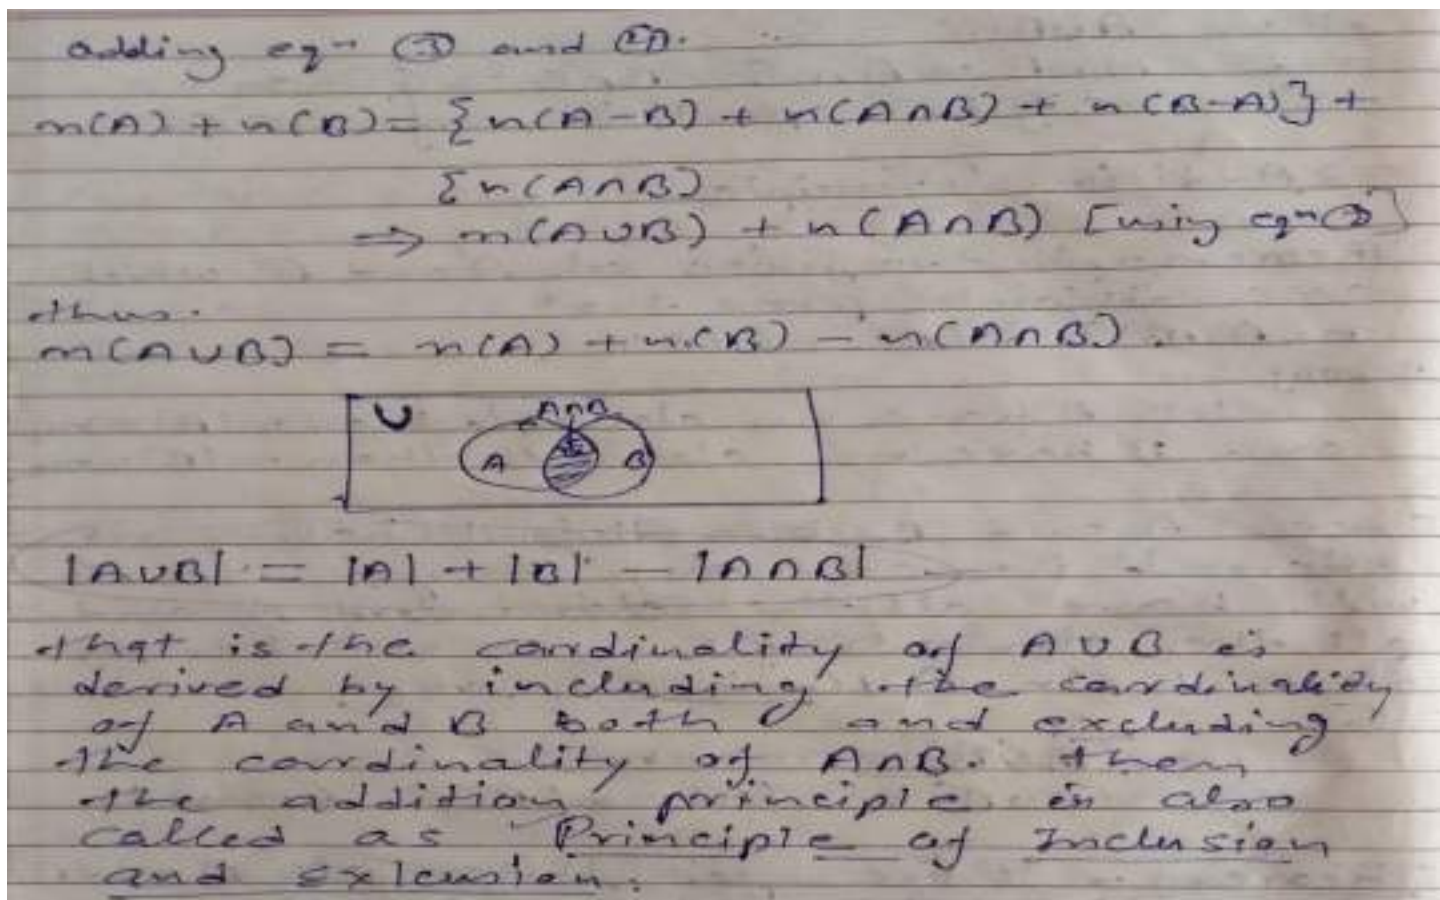 adding eqn ③ and ④.
n(A) + n(B) = {n(A-B) + n(A∩B) + n(B-A)} +
{n(A∩B)
⇒ n(A∪B) + n(A∩B) [using eqn ]
thus.
n(A∪B) = n(A) + n(B) - n(A∩B).
U
A∩B
A
B
|A∪B| = |A| + |B| - |A∩B|
that is the cardinality of A∪B is
derived by including the cardinality
of A and B both and excluding
the cardinality of A∩B. then
the addition principle is also
called as Principle of Inclusion
and exlcusion.